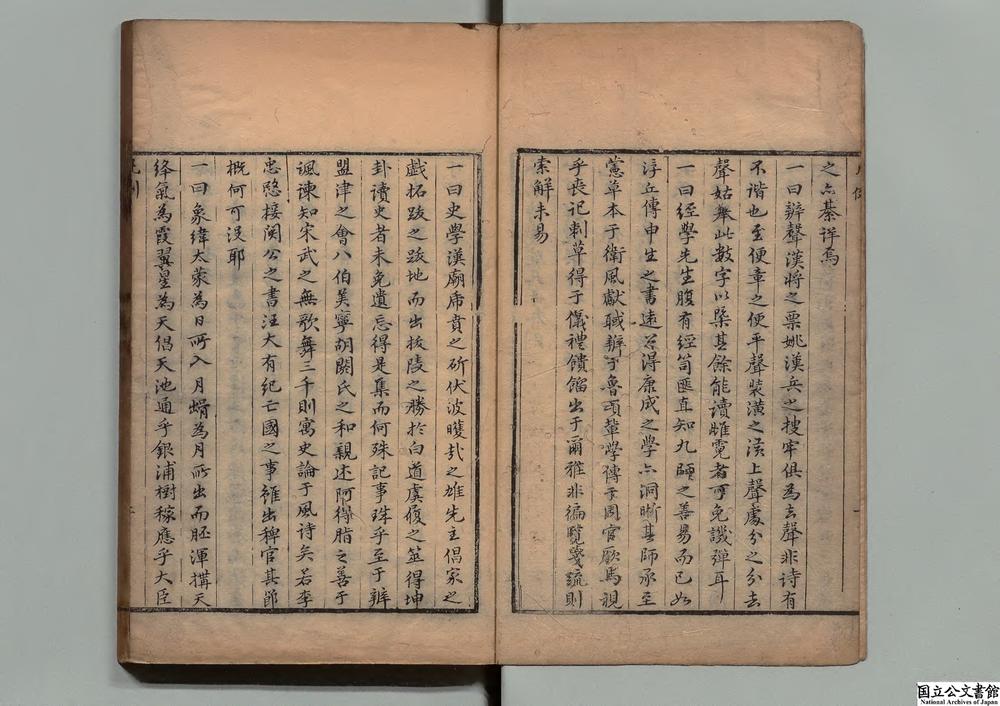 之六綦詳焉
一曰辨聲漢將之票姚漢兵之搜牢俱為去聲非诗有
不谐也至便章之便平聲裝潢之潢上聲處分之分去
聲姑舉此數字以槩其餘能讀雌霓者可免譏彈耳
一曰经學先生腹有經笥匪直知九師之善易而已如
浮丘傳申生之書遠公得康成之學六洞晰其師承至
憲草本于衛風獻聝辨于魯頌輦學傳于周官歐馬視
乎丧记刺草得于儀禮饋餾出于爾雅非徧覽箋疏則
索解未易
一曰史學漢廟虎賁之斫伏波矍矍之雄先主倡家之
戲拓跋之跋地而出扳陵之勝於白道虞履之筮得坤
卦读史者未免遺忘得是集而何殊記事珠乎至于辨
盟津之會八伯美寧胡閼氏之和親述阿得脂之善于
諷諫知宋武之無歌舞三千則寓史論于風诗矣若李
忠愍接関公之書汪大有纪亡國之事雖出稗官其節
概何可没耶
一曰象緯太蒙為日所入月蝟為月所出而胚渾搆天
绛氣為霞翼星為天倡天池通乎銀浦樹稼應乎大臣
国立公文書館
National Archives of Japan